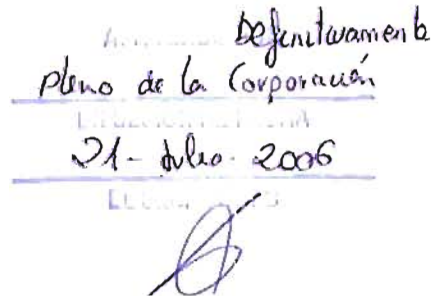 Definitivamente
Pleno de la Corporación
21 - Julio - 2006